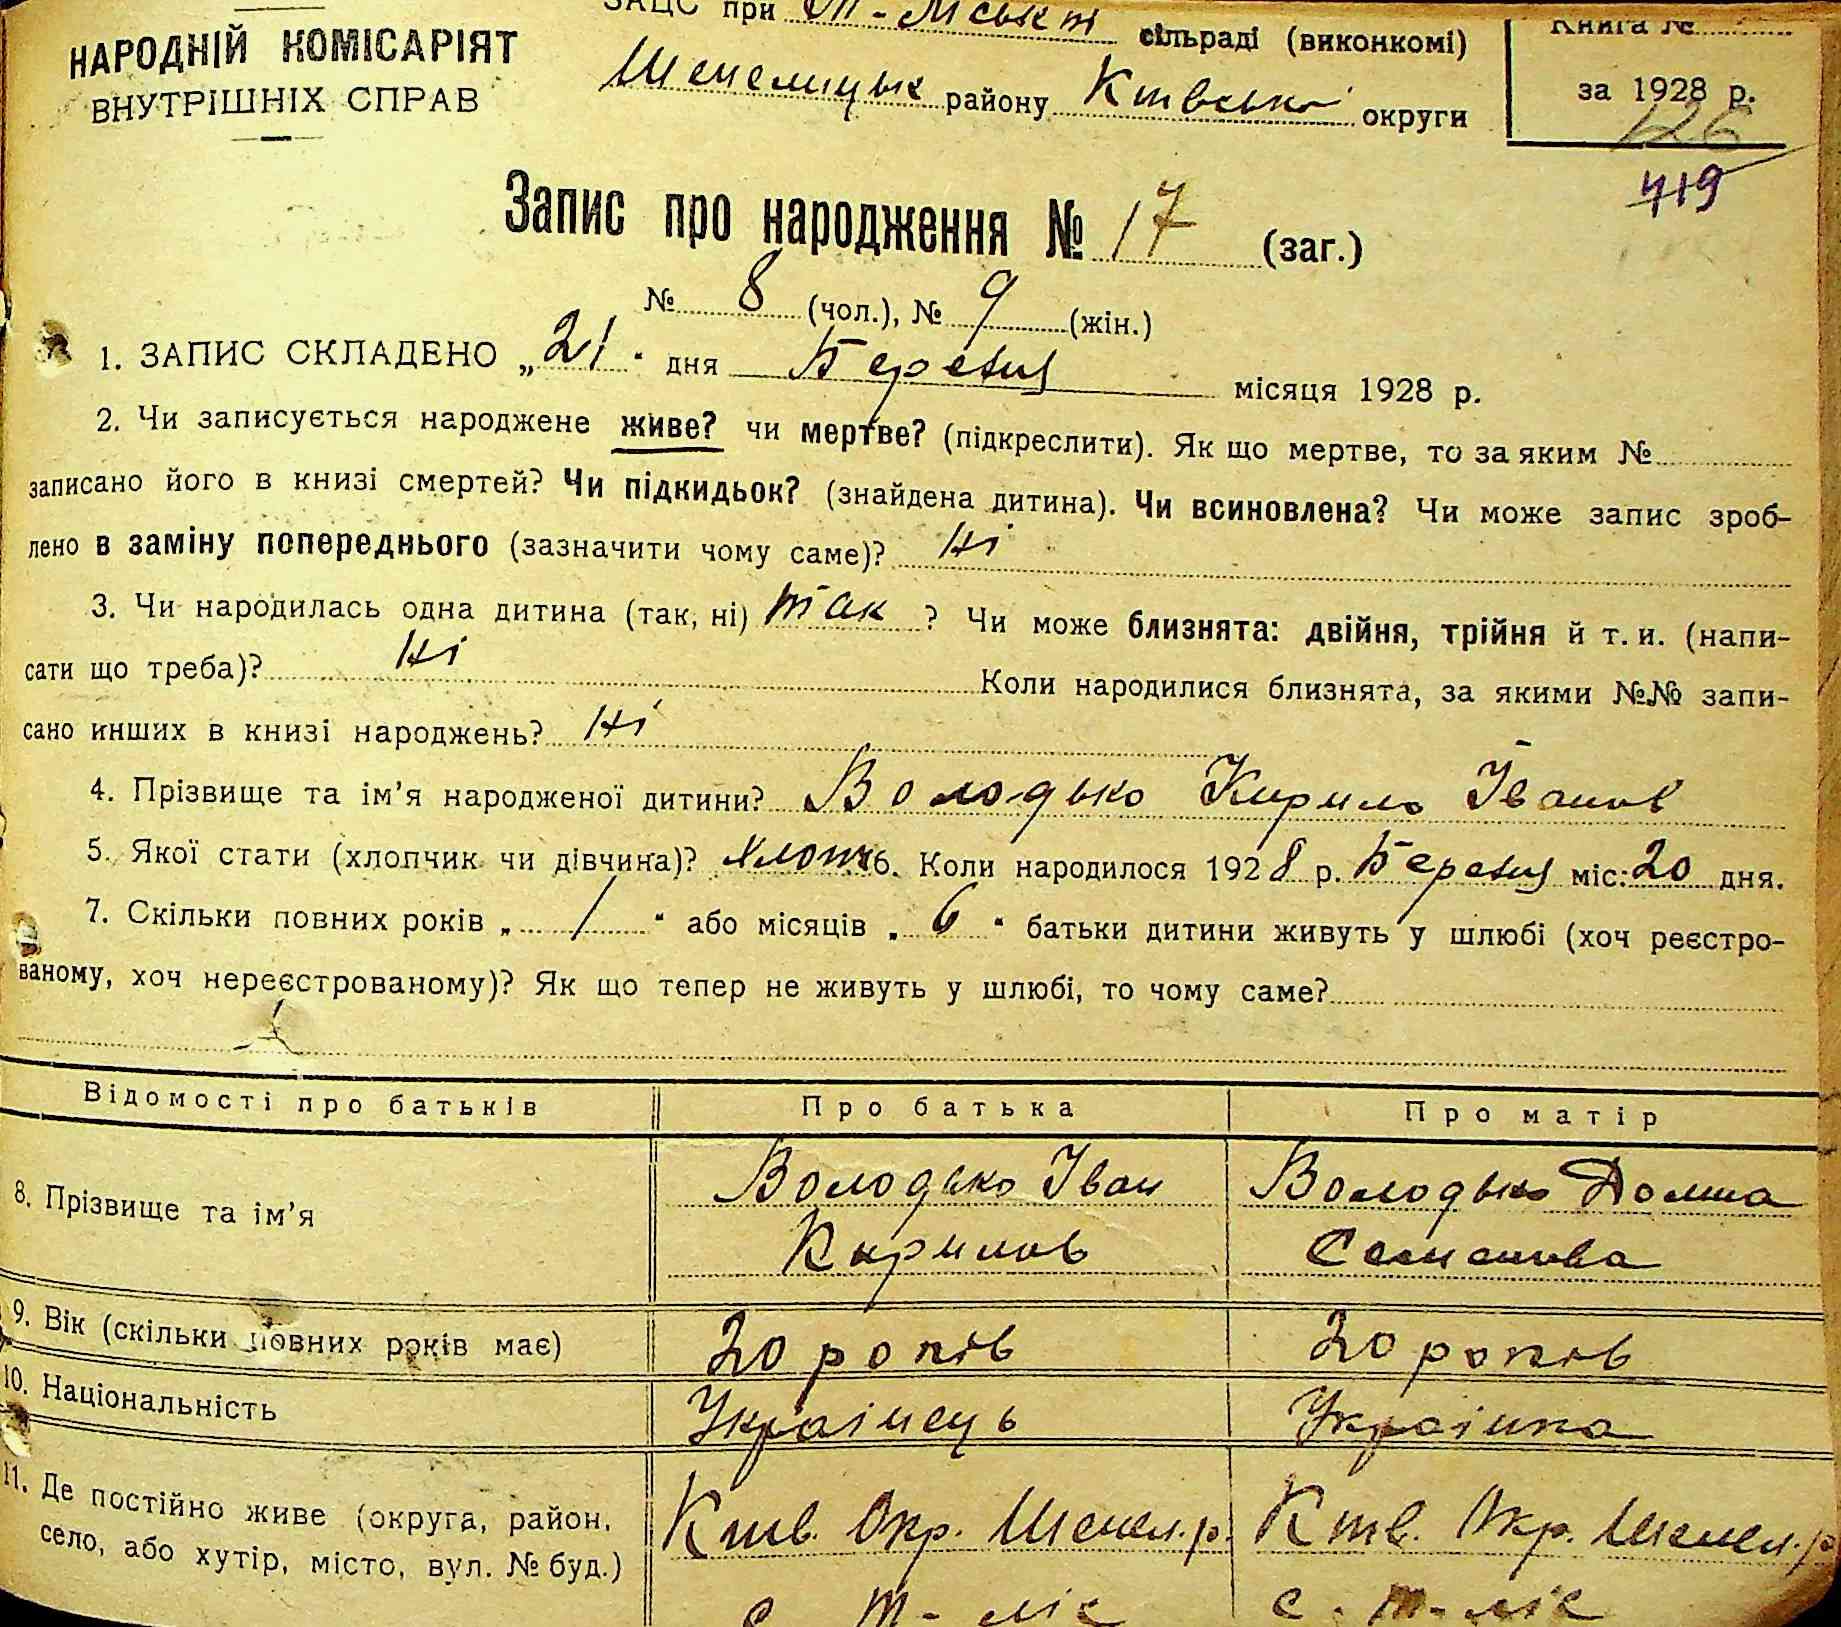 ЗАЦС при Т-Ліській сільраді (виконкомі)
Книга №
НАРОДНІЙ КОМІСАРІЯТ
ВНУТРІШНІХ СПРАВ
Шепелицьк району Київської округи
за 1928 р.
126
419
Запис про народження № 17 (заг.)
№ 8 (чол.), № 9 (жін.)
1. ЗАПИС СКЛАДЕНО „21" дня Березня місяця 1928 р.
2. Чи записується народжене живе? чи мертве? (підкреслити). Як що мертве, то за яким №
записано його в книзі смертей? Чи підкидьок? (знайдена дитина). Чи всиновлена? Чи може запис зроб-
лено в заміну попереднього (зазначити чому саме)? Ні
3. Чи народилась одна дитина (так, ні) так ? Чи може близнята: двійня, трійня й т. и. (напи-
сати що треба)? Ні Коли народилися близнята, за якими №№ запи-
сано инших в книзі народжень? Ні
4. Прізвище та ім'я народженої дитини? Володько Кирило Іванов
5. Якої стати (хлопчик чи дівчина)? хлопч 6. Коли народилося 1928 р. Березня міс: 20 дня.
7. Скільки повних років „ / " або місяців „ 6 " батьки дитини живуть у шлюбі (хоч реєстро-
ваному, хоч нереєстрованому)? Як що тепер не живуть у шлюбі, то чому саме?
Відомості про батьків Про батька Про матір
8. Прізвище та ім'я Володько Іван Володько Домна
Кирилов Семенова
9. Вік (скільки повних років має) 20 років 20 років
10. Національність Украінець Украінка
11. Де постійно живе (округа, район, Київ. Окр. Шепел. р. Київ. Окр. Шепел. р.
село, або хутір, місто, вул. № буд.) с. Т-ліс с. Т-ліс